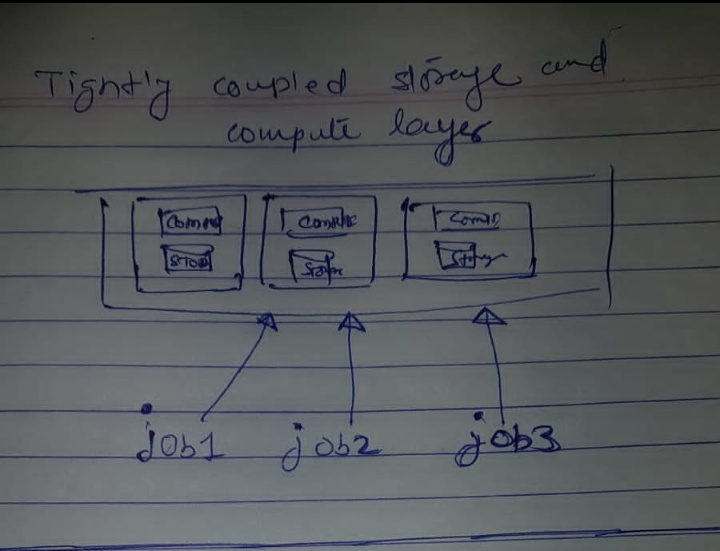 Tightly coupled storage and
compute layer
Compute Compute Comp
Stor Storage Storage
job1 job2 job3